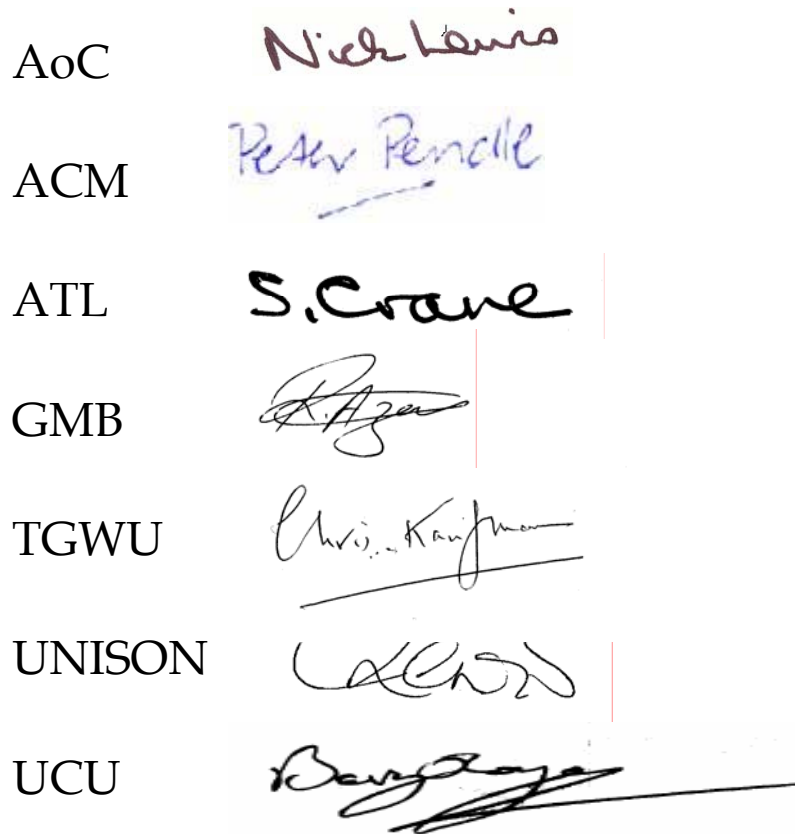 AoC Nick Lewis
ACM Peter Pendle
ATL S. Crane
GMB
TGWU Chris Kaufman
UNISON
UCU